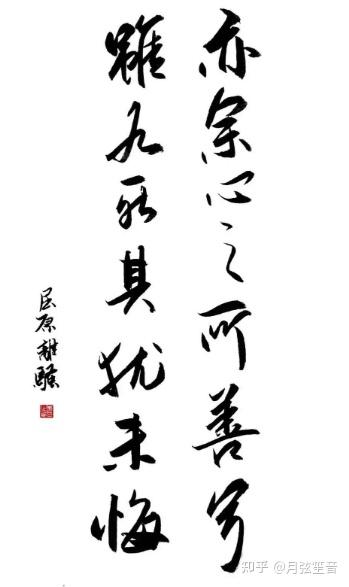 亦余心之所善兮
雖九死其犹未悔
屈原離騷
知乎 @月弦笙音